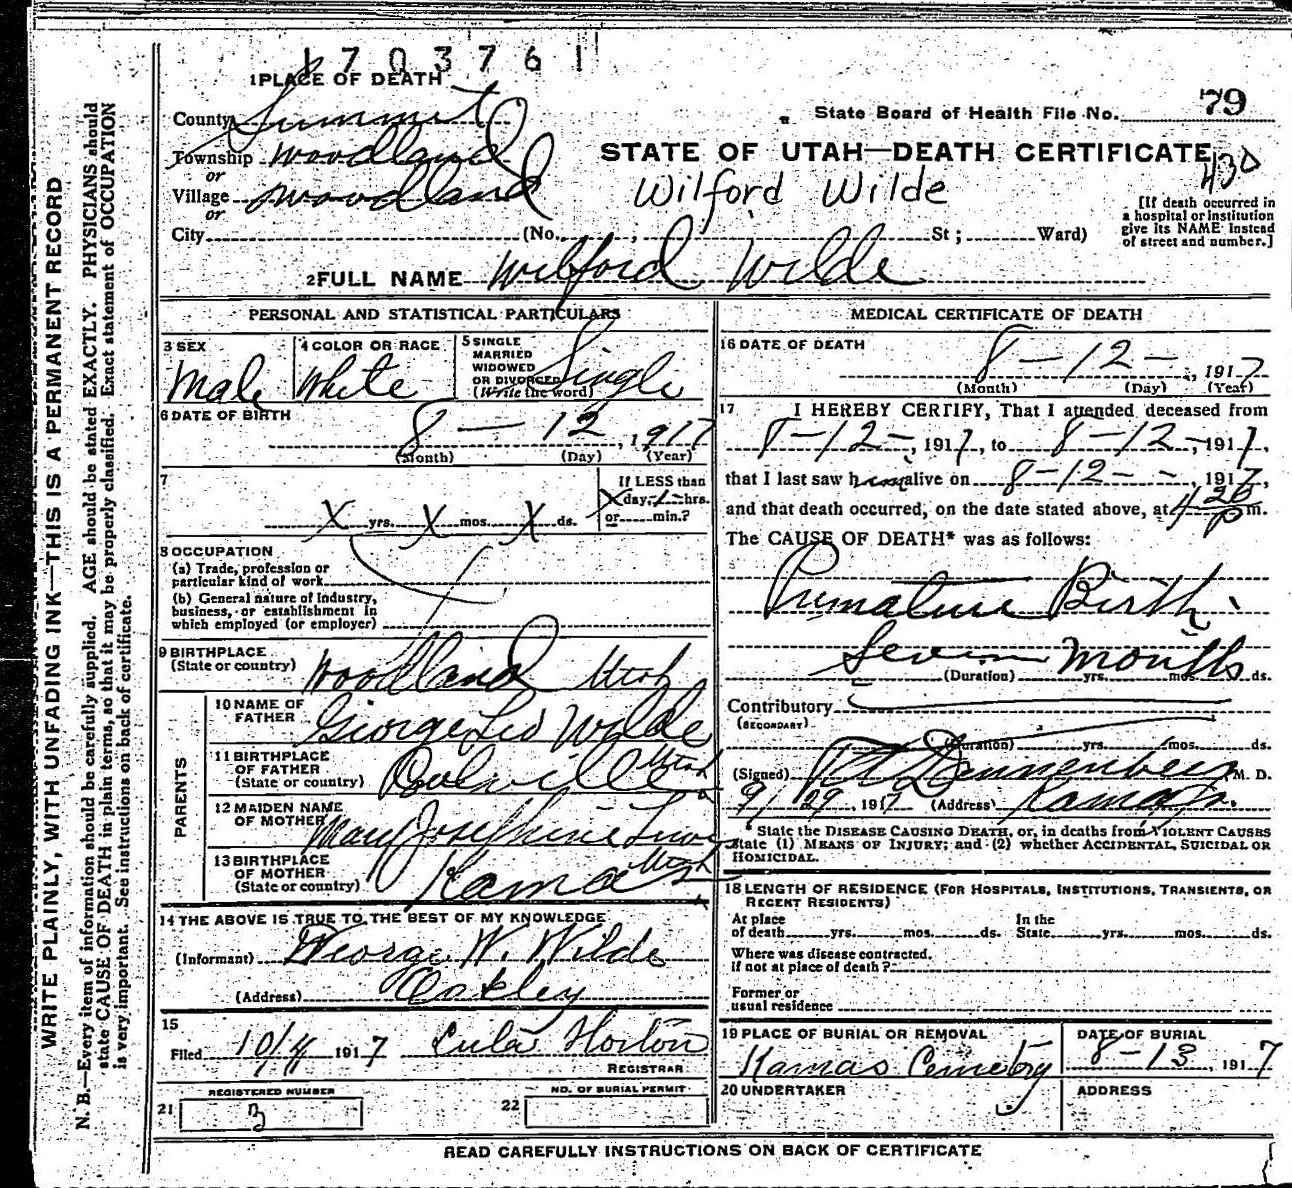 1703761
1 PLACE OF DEATH
County Summit
State Board of Health File No. 79
Township Woodland
or
STATE OF UTAH—DEATH CERTIFICATE
430
Village Woodland
or
Wilford Wilde
[If death occurred in
a hospital or institution
give its NAME instead
of street and number.]
City (No. , St ; Ward)
2 FULL NAME Wilford Wilde
PERSONAL AND STATISTICAL PARTICULARS
3 SEX
Male
4 COLOR OR RACE
White
5 SINGLE
MARRIED
WIDOWED
OR DIVORCED
(Write the word)
Single
6 DATE OF BIRTH
8 — 12 , 1917
(Month) (Day) (Year)
7
X yrs. X mos. X ds.
If LESS than
day, hrs.
or min.?
8 OCCUPATION
(a) Trade, profession or
particular kind of work
(b) General nature of industry,
business, or establishment in
which employed (or employer)
9 BIRTHPLACE
(State or country) Woodland Utah
PARENTS
10 NAME OF
FATHER George Leo Wilde
11 BIRTHPLACE
OF FATHER
(State or country) Utah
12 MAIDEN NAME
OF MOTHER Mary Josephine Lewis
13 BIRTHPLACE
OF MOTHER
(State or country) Kamas Utah
14 THE ABOVE IS TRUE TO THE BEST OF MY KNOWLEDGE
(Informant) George W. Wilde
(Address) Oakley
15
Filed 10/4 1917 Lula Horton
REGISTRAR
REGISTERED NUMBER
21 3
NO. OF BURIAL PERMIT
22
MEDICAL CERTIFICATE OF DEATH
16 DATE OF DEATH
8 — 12 — , 1917
(Month) (Day) (Year)
17 I HEREBY CERTIFY, That I attended deceased from
8—12—, 1917, to 8—12—, 1917,
that I last saw him alive on 8—12— —, 1917,
and that death occurred, on the date stated above, at 4 20 P m.
The CAUSE OF DEATH* was as follows:
Premature Birth
Seven months
(Duration) yrs. mos. ds.
Contributory
(SECONDARY)
(Duration) yrs. mos. ds.
(Signed) Dannenberg M. D.
9/29, 1917 (Address) Kamas
* State the DISEASE CAUSING DEATH, or, in deaths from VIOLENT CAUSES
state (1) MEANS OF INJURY; and (2) whether ACCIDENTAL, SUICIDAL OR
HOMICIDAL.
18 LENGTH OF RESIDENCE (FOR HOSPITALS, INSTITUTIONS, TRANSIENTS, OR
RECENT RESIDENTS)
At place
of death yrs. mos. ds.
In the
State yrs. mos. ds.
Where was disease contracted.
if not at place of death?
Former or
usual residence
19 PLACE OF BURIAL OR REMOVAL
Kamas Cemetry
DATE OF BURIAL
8—13, 1917
20 UNDERTAKER
ADDRESS
READ CAREFULLY INSTRUCTIONS ON BACK OF CERTIFICATE
WRITE PLAINLY, WITH UNFADING INK—THIS IS A PERMANENT RECORD
N. B.—Every item of information should be carefully supplied. AGE should be stated EXACTLY. PHYSICIANS should
state CAUSE OF DEATH in plain terms, so that it may be properly classified. Exact statement of OCCUPATION
is very important. See instructions on back of certificate.